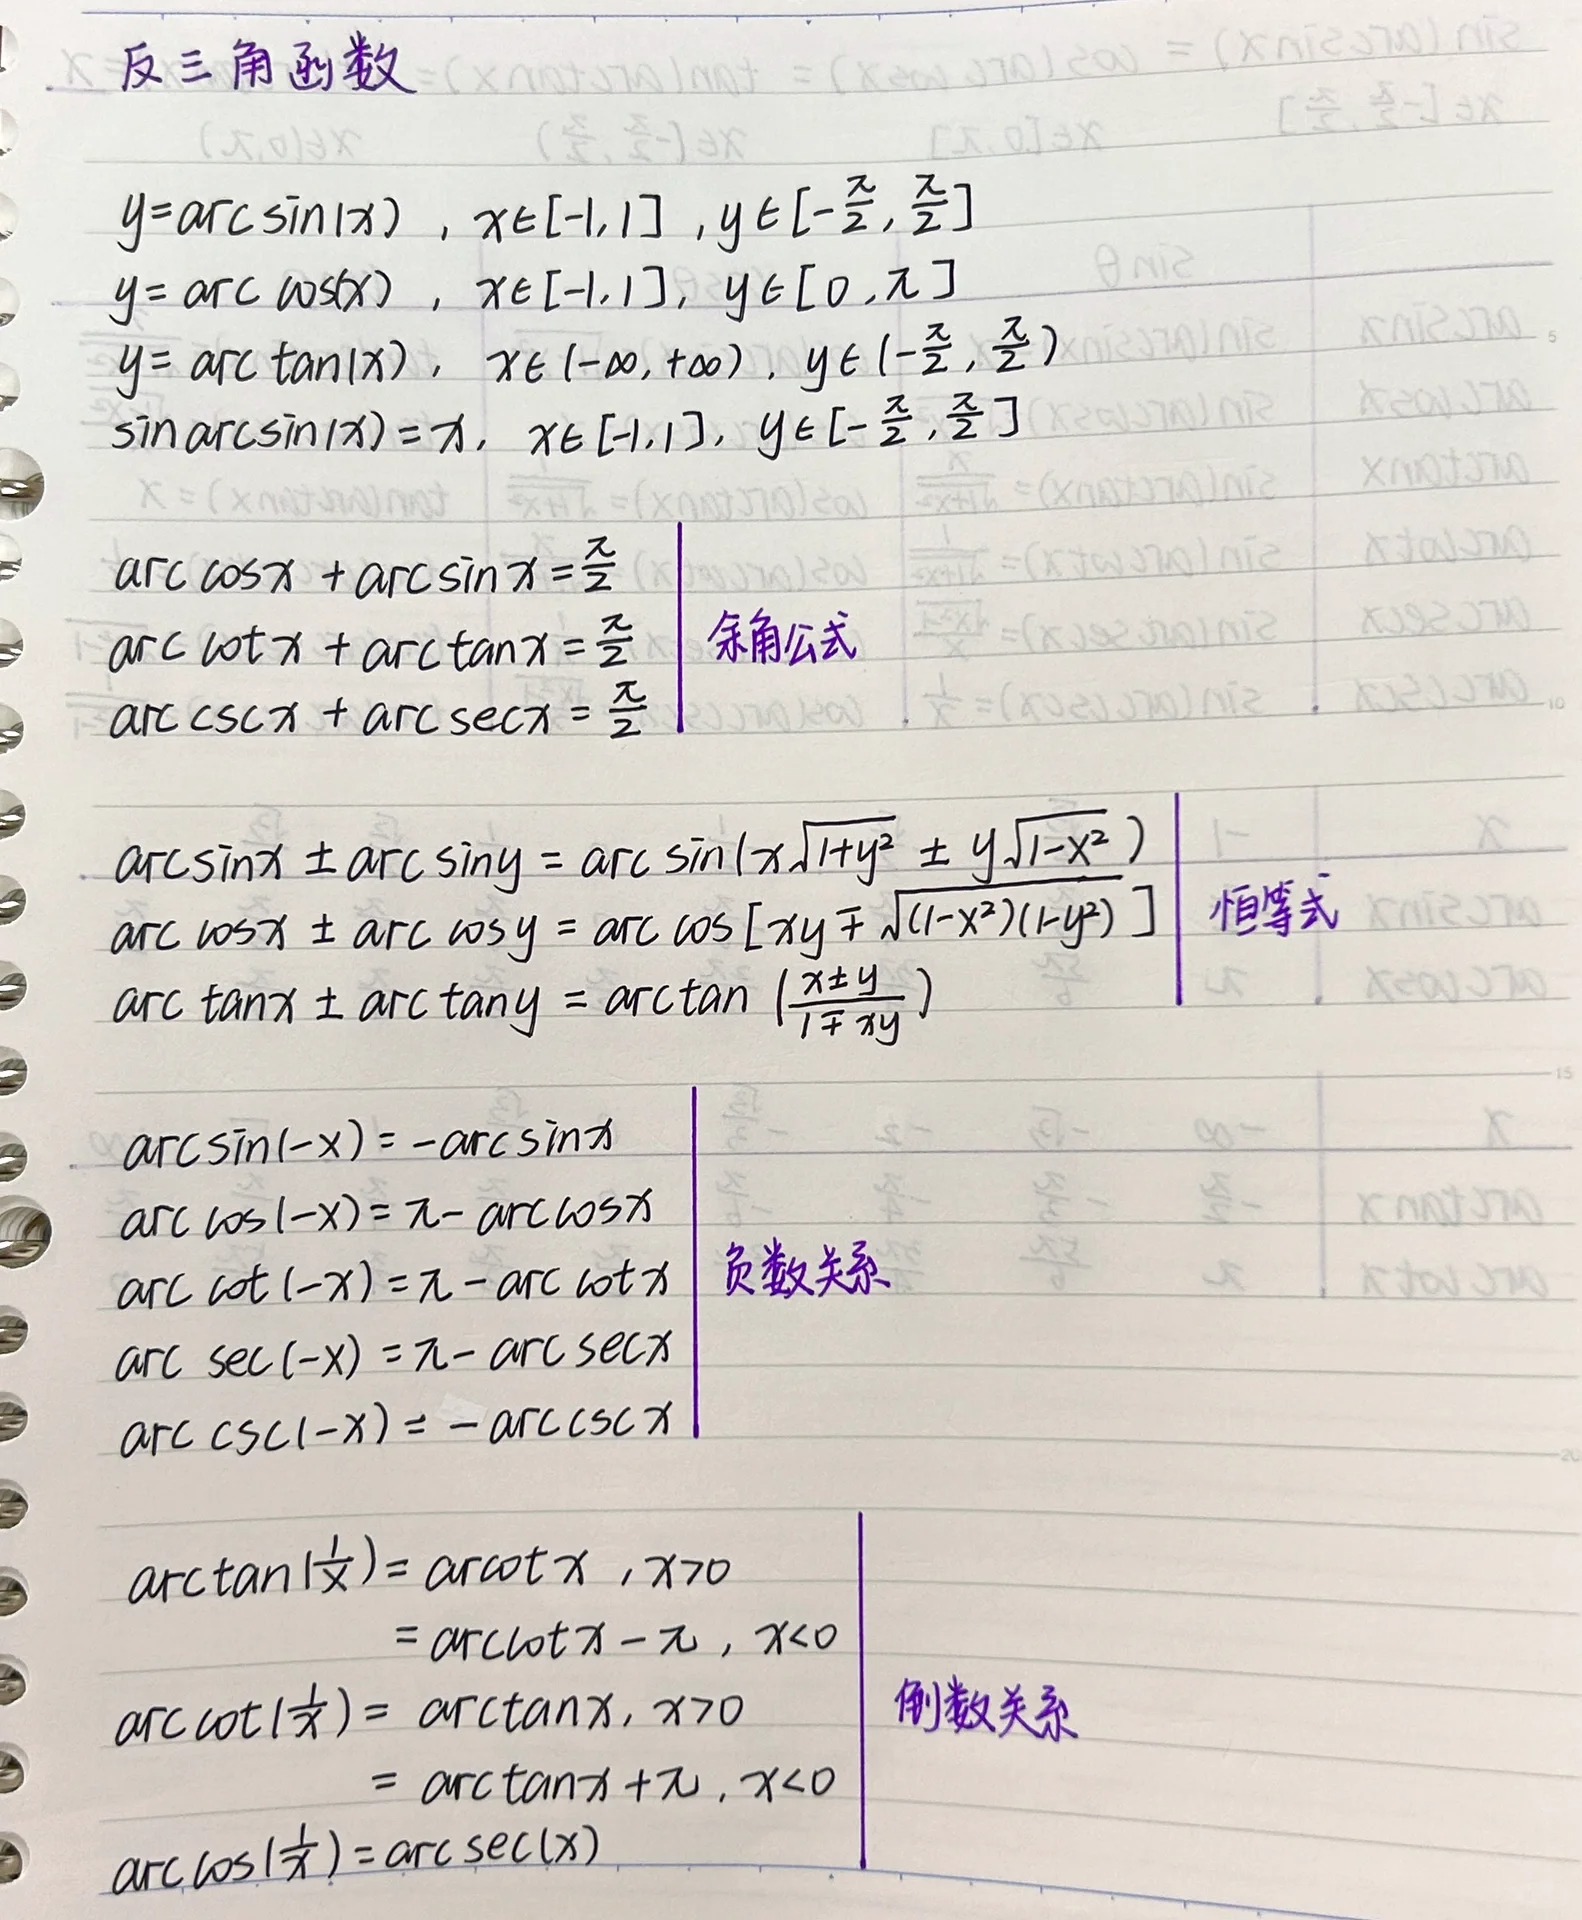 反三角函数
y=arcsin(x), x∈[-1,1], y∈[-π/2, π/2]
y=arccos(x), x∈[-1,1], y∈[0,π]
y=arctan(x), x∈(-∞,+∞), y∈(-π/2, π/2)
sinarcsin(x)=x, x∈[-1,1], y∈[-π/2, π/2]
arccosx+arcsinx=π/2
arccotx+arctanx=π/2
余角公式
arccscx+arcsecx=π/2
arcsinx±arcsiny=arcsin(x√(1+y²)±y√(1-x²))
arccosx±arccosy=arccos[xy∓√((1-x²)(1-y²))]
恒等式
arctanx±arctany=arctan((x±y)/(1∓xy))
arcsin(-x)=-arcsinx
arccos(-x)=π-arccosx
arccot(-x)=π-arccotx
负数关系
arcsec(-x)=π-arcsecx
arccsc(-x)=-arccscx
arctan(1/x)=arcotx, x>0
=arccotx-π, x<0
arccot(1/x)=arctanx, x>0
倒数关系
=arctanx+π, x<0
arccos(1/x)=arcsec(x)